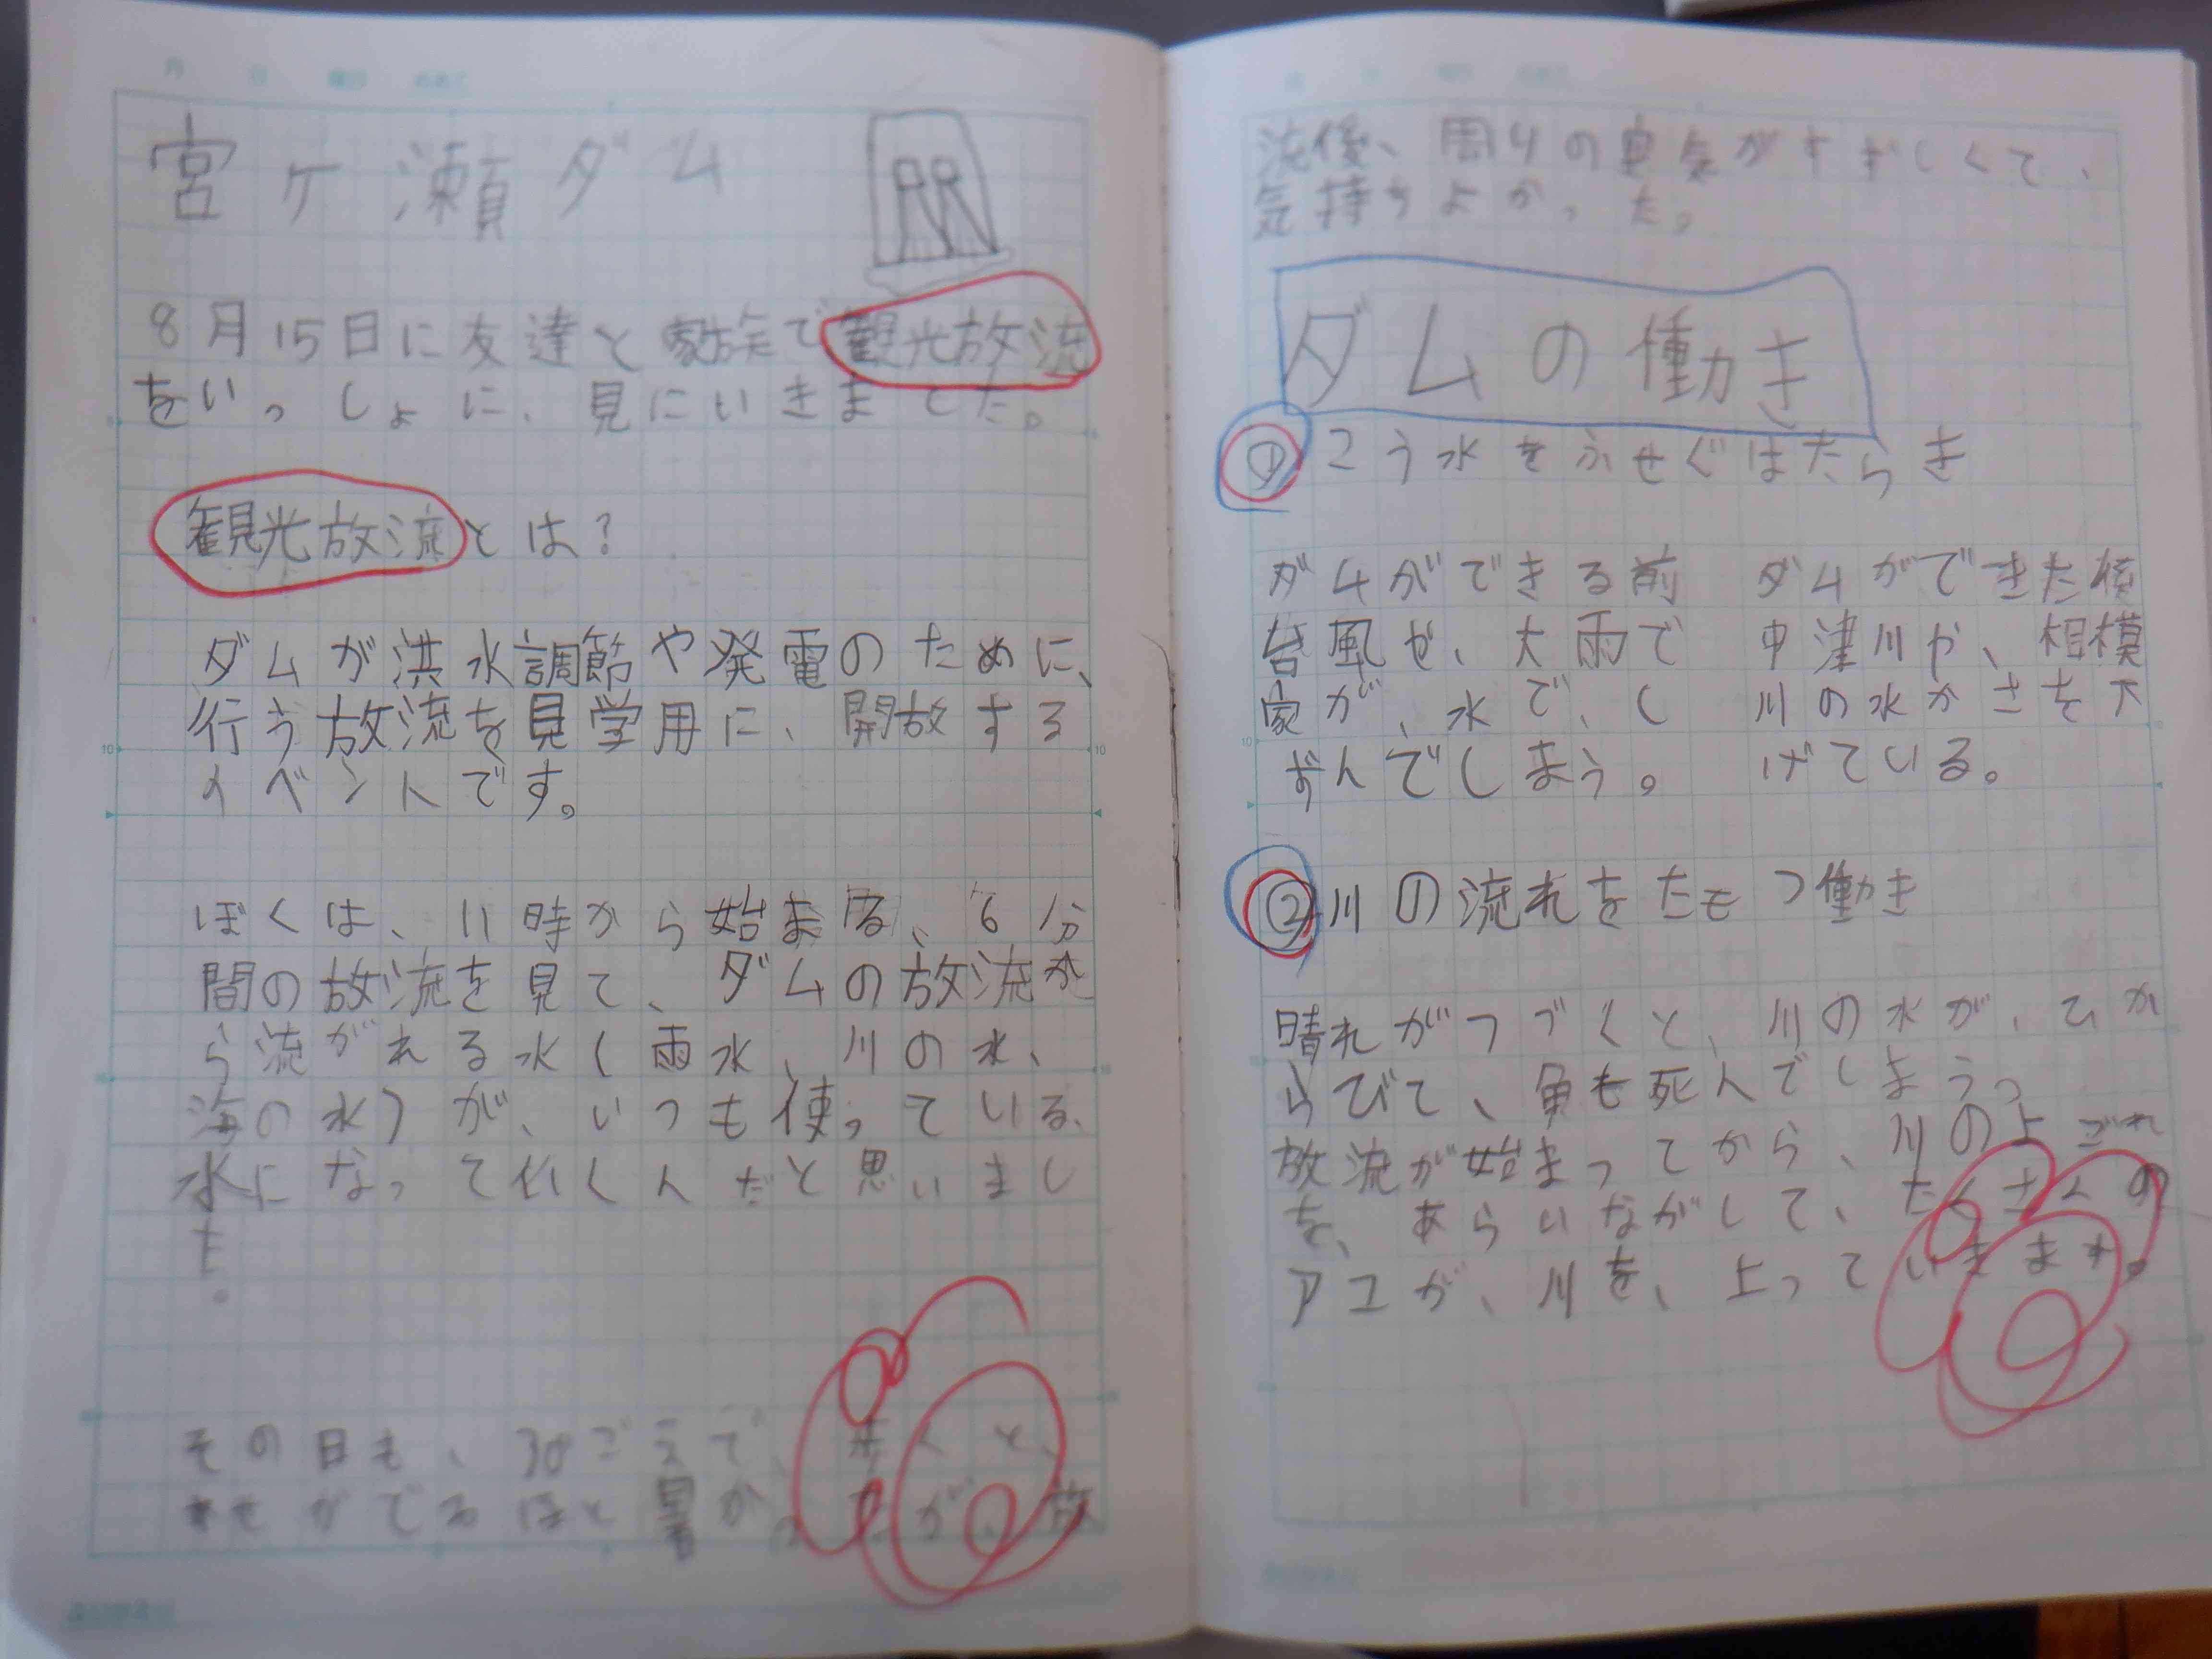 宮ヶ瀬ダム
8月15日に友達と家族で観光放流
をいっしょに、見にいきました。
観光放流とは?
ダムが洪水調節や発電のために、
行う放流を見学用に、開放する
イベントです。
ぼくは、11時から始まる、6分
間の放流を見て、ダムの放流か
ら流がれる水(雨水、川の水、
海の水)が、いつも使っている、
水になって行くんだと思いまし
た。
その日も、30°ごえで、歩くと、
あせがでるほど暑かったが、放
流後、周りの空気がすずしくて、
気持ちよかった。
ダムの働き
① こう水をふせぐはたらき
ダムができる前
台風や、大雨で
家が、水で、し
ずんでしまう。
ダムができた後
中津川や、相模
川の水かさを下
げている。
②川の流れをたもつ働き
晴れがつづくと、川の水が、ひか
らびて、魚も死んでしまう。
放流が始まってから、川のよごれ
を、あらいながして、たくさんの
アユが、川を、上っていきます。